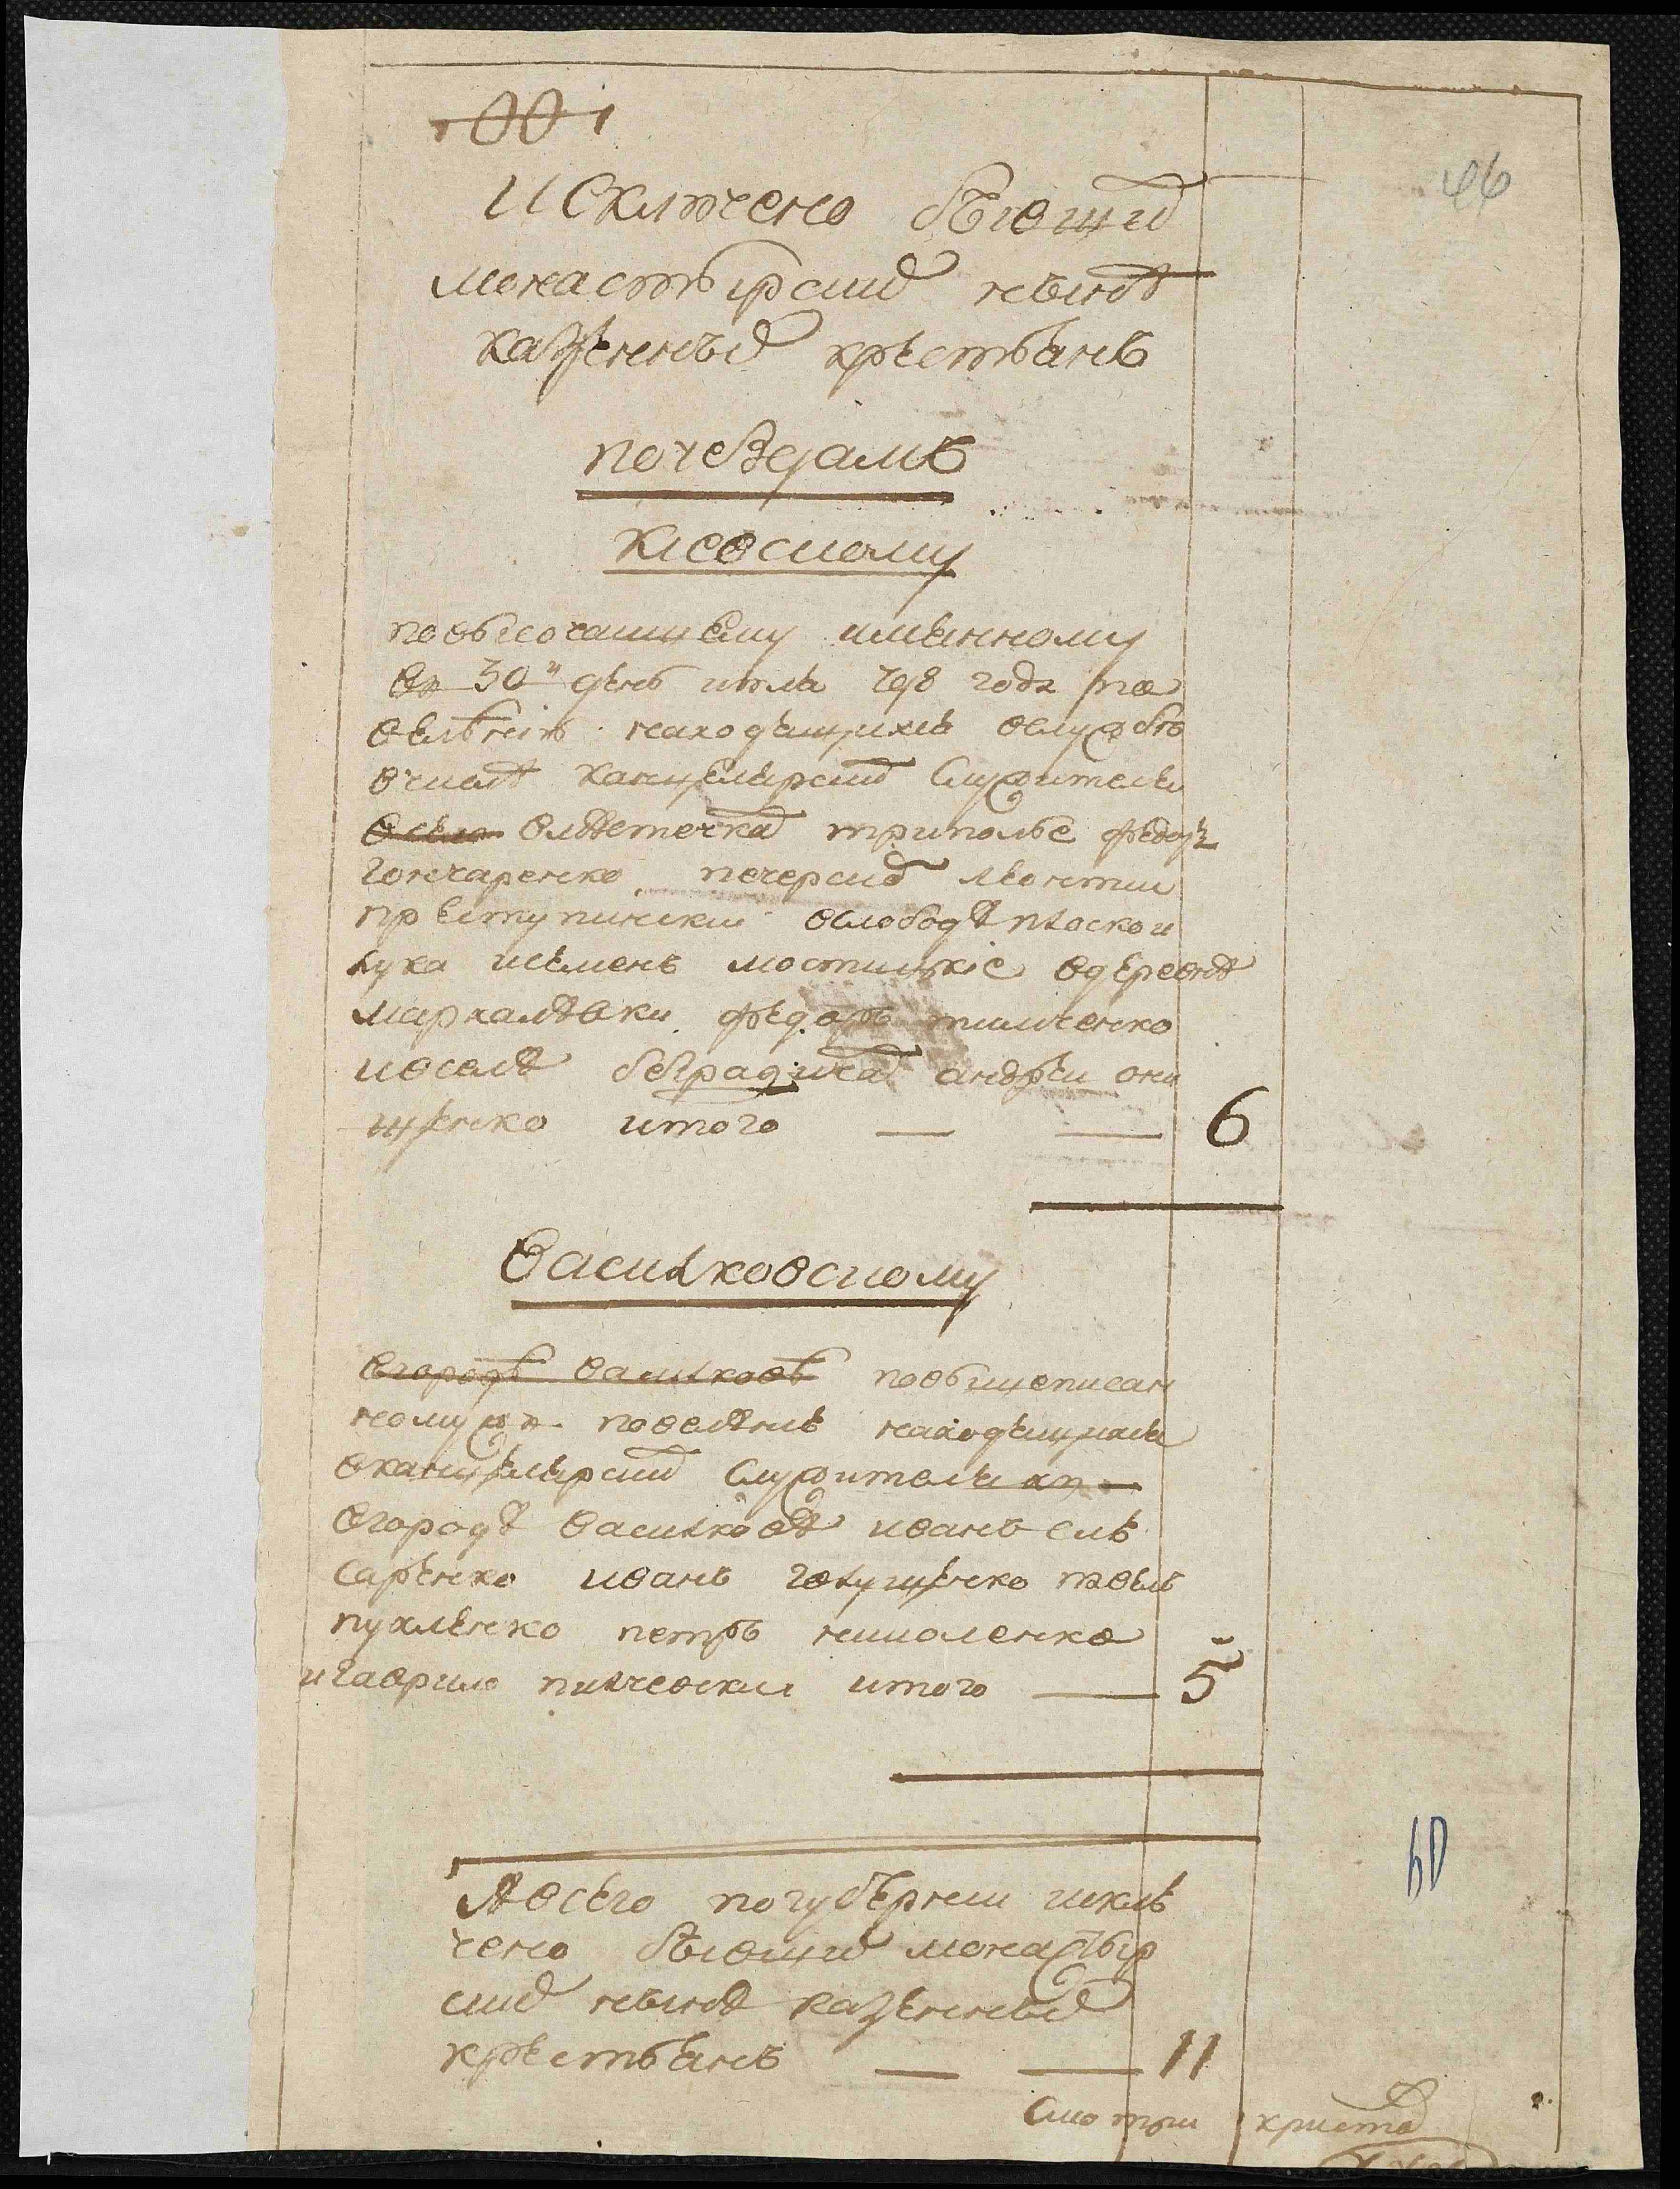 46
Исключено бывших
монастырских ныне
казенных крестьянъ
по уездамъ
Киевскому
по высочайшему имянному
въ 30й день июля 798 года по
велению находящихся в службе
в числе канцелярских служителей
в местечках триполье федор
гончаренко печерских леонтии
преступинский в слободе плоской
лука и семенъ мостицкие в деревне
мархалевки федоръ тимченко
и в селе безрадичах андрей они
щенко итого 6
Васильковскому
в городе Василковъ по вышеписан
ному повелению находящихся
в канцелярских служителях
в городе василкове иванъ еле
саренко иванъ голущенко павелъ
пухленко петръ николенко
и гаврило пилчевский итого 5
А всего по губернии исклю
чено бывших монастыр
ских ныне казенных
крестьянъ 11